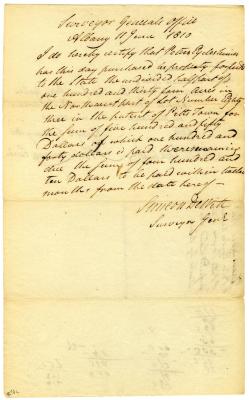 Surveyor Generals Office
Albany 11 June 1810
I do hereby certify that Peter
has this day purchased as property forfeited
to the State the undivided half part of
one hundred and thirty acres in
the Northwest part of Lot Number
three in the patent of Pitts Town for
the sum of five hundred and fifty
Dollars of which one hundred and
forty dollars is paid the remaining
due the sum of four hundred and
ten Dollars to be paid within twelve
months from the date hereof
Simeon DeWitt
Surveyor Genl